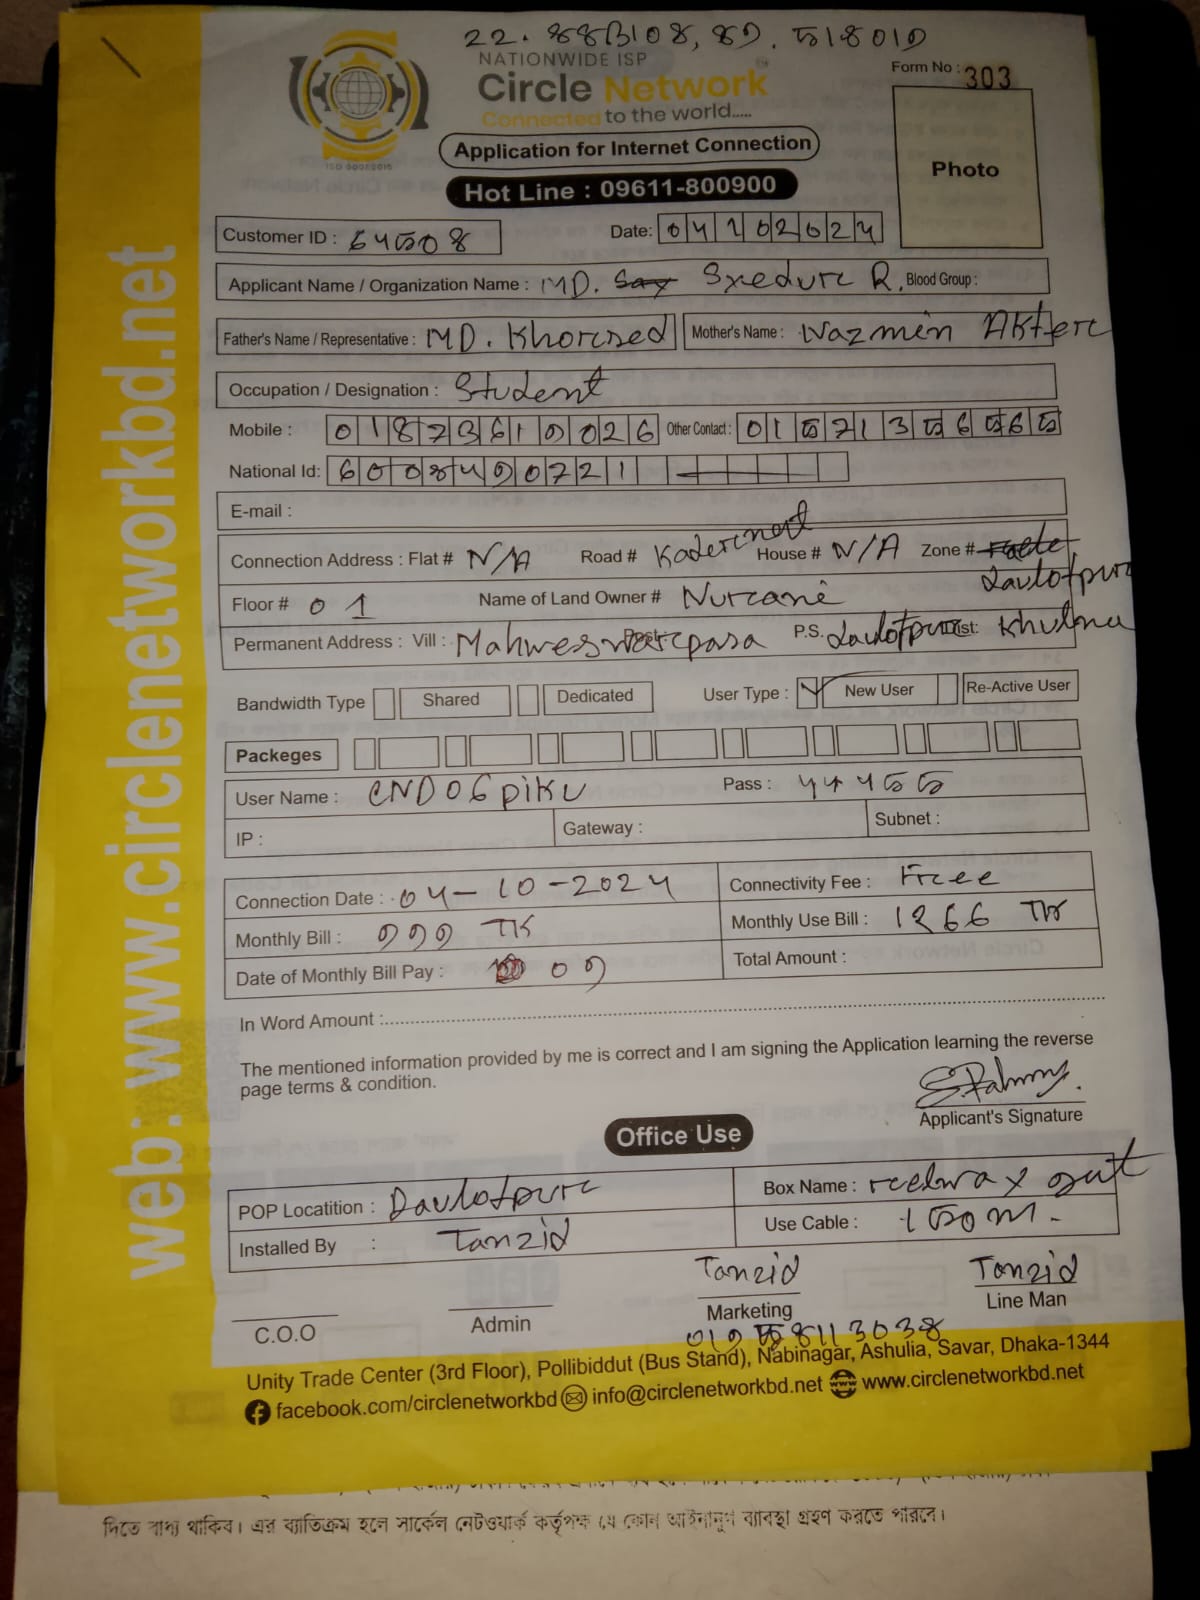 22.
NATIONWIDE ISP
Circle Network
Connected to the world.....
ISO 9001:2015
Form No : 303
Photo
Application for Internet Connection
Hot Line : 09611-800900
Customer ID :
Date: 04102024
Applicant Name / Organization Name : MD. Blood Group :
Father's Name / Representative : MD. Khorsed Mother's Name : Nazmin Akter
Occupation / Designation : Student
Mobile : Other Contact :
National Id:
E-mail :
Connection Address : Flat # N/A Road # House # N/A Zone # Daulotpur
Floor # 01 Name of Land Owner # Nurcane
Permanent Address : Vill : Maheswarpasa Post: P.S. Daulotpur Dist: Khulna
Bandwidth Type Shared Dedicated User Type : New User Re-Active User
Packeges
User Name : CND06piku Pass :
IP : Gateway : Subnet :
Connection Date : 04-10-2024 Connectivity Fee : Free
Monthly Bill : 999 TK Monthly Use Bill : 1266 TK
Date of Monthly Bill Pay : 09 Total Amount :
In Word Amount :
The mentioned information provided by me is correct and I am signing the Application learning the reverse
page terms & condition.
Applicant's Signature
Office Use
POP Locatition : Daulotpur Box Name :
Installed By : Tanzid Use Cable :
Tanzid Tanzid
C.O.O Admin Marketing Line Man
Unity Trade Center (3rd Floor), Pollibiddut (Bus Stand), Nabinagar, Ashulia, Savar, Dhaka-1344
facebook.com/circlenetworkbd info@circlenetworkbd.net www.circlenetworkbd.net
web: www.circlenetworkbd.net
দিতে বাধ্য থাকিব। এর ব্যতিক্রম হলে সার্কেল নেটওয়ার্ক কর্তৃপক্ষ যে কোন আইনানুগ ব্যাবস্থা গ্রহণ করতে পারবে।